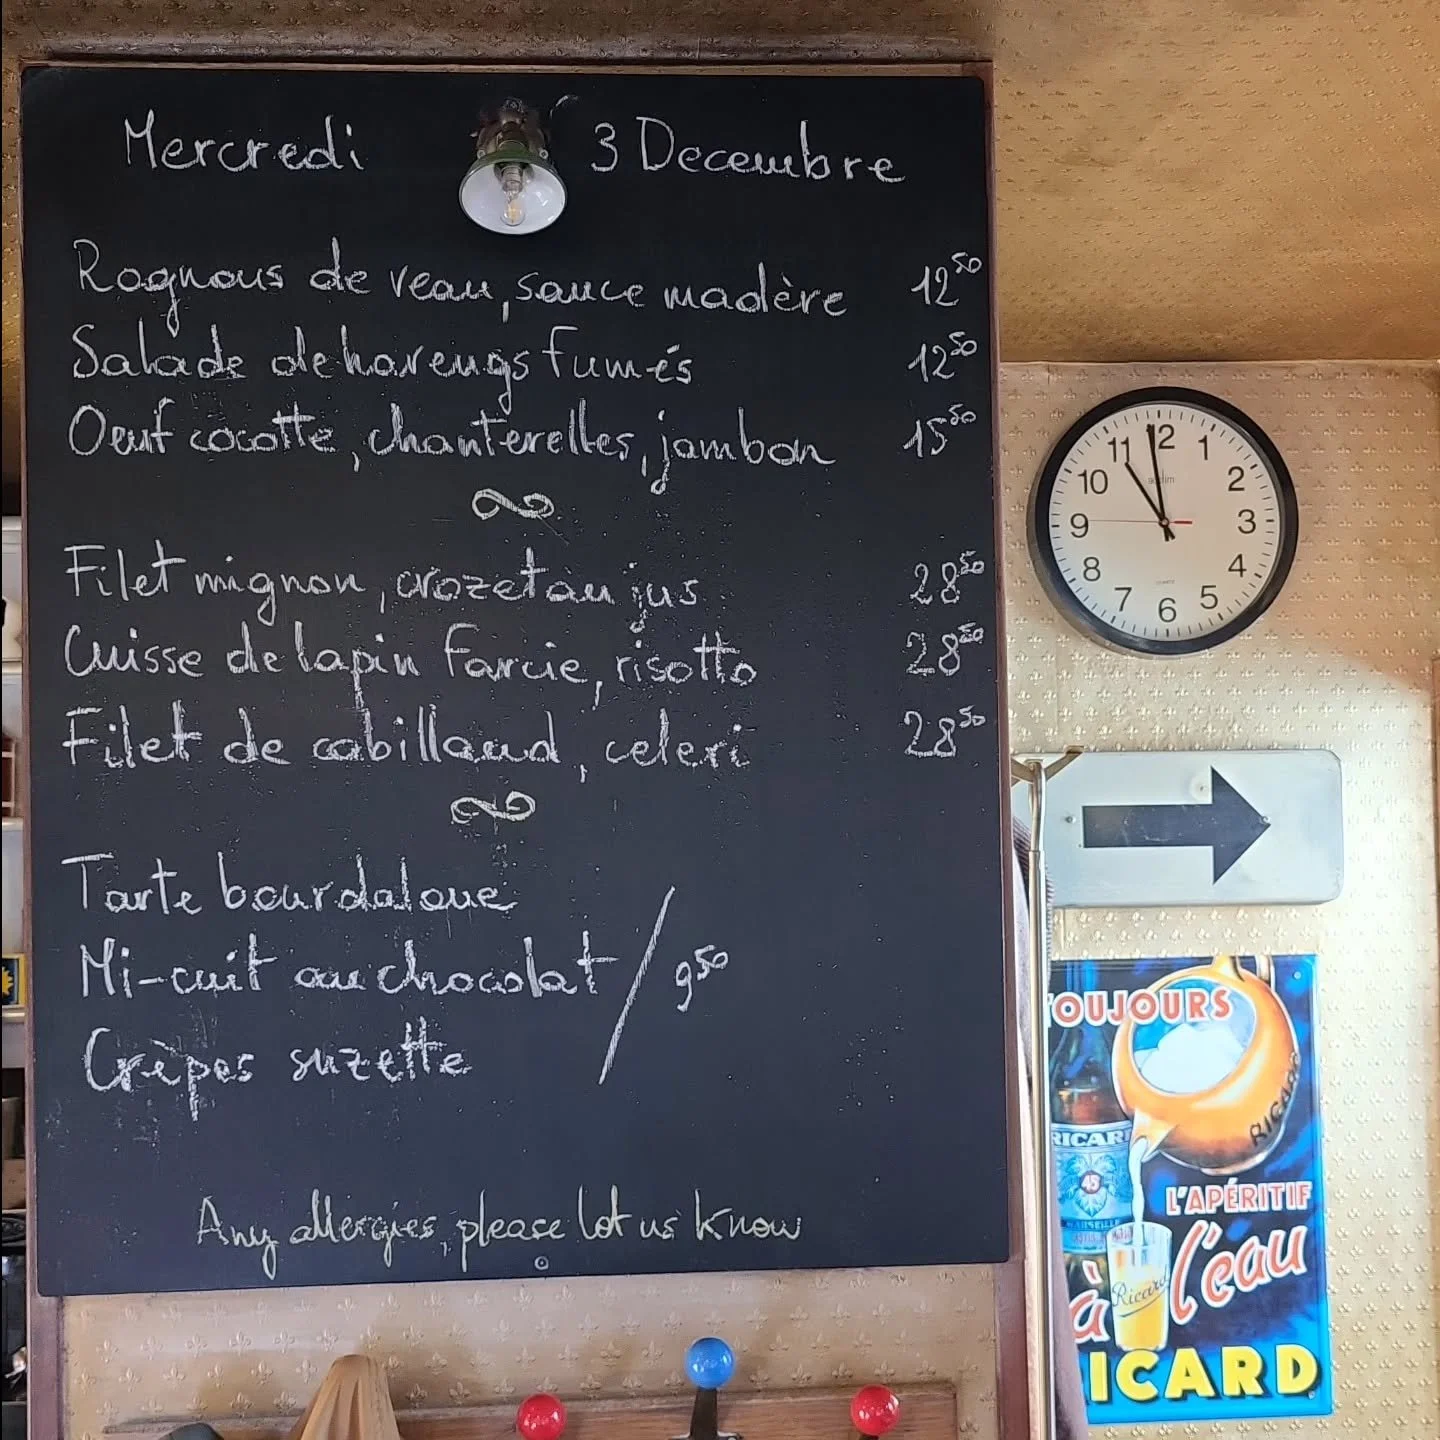 Mercredi 3 Decembre
Rognons de veau, sauce madère 12⁵⁰
Salade de harengs fumés 12⁵⁰
Oeuf cocotte, chanterelles, jambon 15⁵⁰
Filet mignon, crozet au jus 28⁵⁰
Cuisse de lapin farcie, risotto 28⁵⁰
Filet de cabillaud, celeri 28⁵⁰
Tarte bourdaloue
Mi-cuit au chocolat / 9⁵⁰
Crèpes suzette
Any allergies, please let us know
12
1
2
3
4
5
6
7
8
9
10
11
QUARTZ
TOUJOURS
RICARD
RICARD
45
MARSEILLE
L'APÉRITIF
à l'eau
Ricard
RICARD